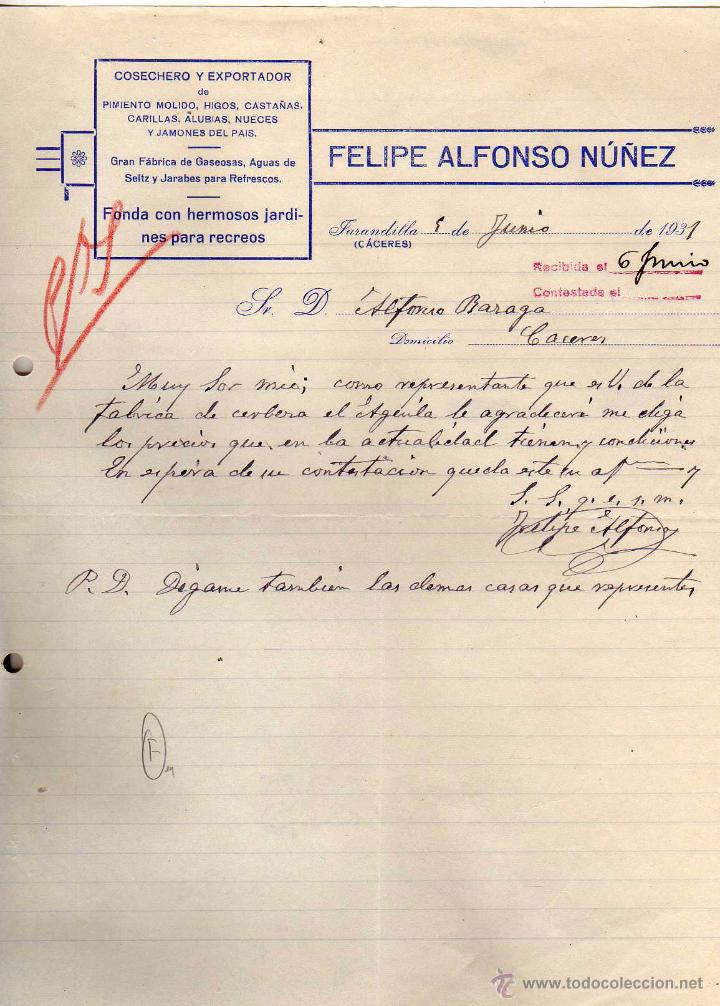 COSECHERO Y EXPORTADOR
de
PIMIENTO MOLIDO, HIGOS, CASTAÑAS,
CARILLAS, ALUBIAS, NUECES
Y JAMONES DEL PAIS.
Gran Fábrica de Gaseosas, Aguas de
Seltz y Jarabes para Refrescos.
Fonda con hermosos jardi-
nes para recreos
FELIPE ALFONSO NÚÑEZ
Jarandilla 5 de Junio de 1931
(CÁCERES)
Recibida el 6 Junio
Contestada el
Sr. D. Alfonso Baraga
Domicilio Caceres
Muy Sor mio; como representante que es V. de la
fabrica de cerbesa el Águila le agradeceré me diga
los precios que en la actualidad tienen y condiciones
En espera de su contestacion queda este su af y
S. S. q. e. s. m.
Felipe Alfonso
P. D. Digame tambien las demas casas que representes
www.todocoleccion.net